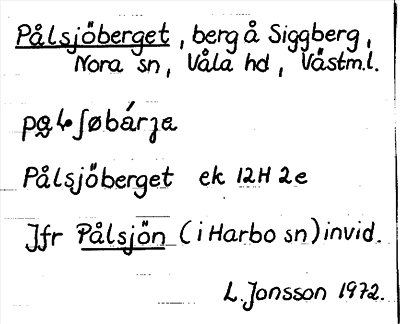 Pålsjöberget, berg å Siggberg,
Nora sn, Våla hd, Västml.
Pålsjöberget ek 12H 2e
Jfr Pålsjön (i Harbo sn) invid.
L. Jonsson 1972.